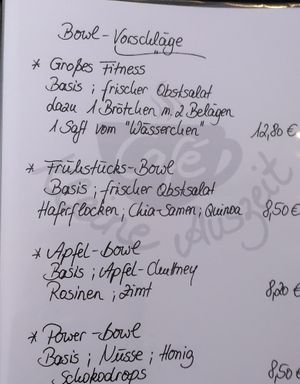 Bowl - Vorschläge
* Großes Fitness
Basis ; frischer Obstsalat
dazu 1 Brötchen m. 2 Belägen
1 Saft vom "Wässerchen" 12,80 €
* Frühstücks-Bowl
Basis ; frischer Obstsalat
Haferflocken ; Chia-Samen ; Quinoa 8,50 €
* Apfel-bowl
Basis ; Apfel-Chutney
Rosinen ; Zimt 8,20 €
* Power-bowl
Basis ; Nüsse ; Honig
Schokodrops 8,50 €